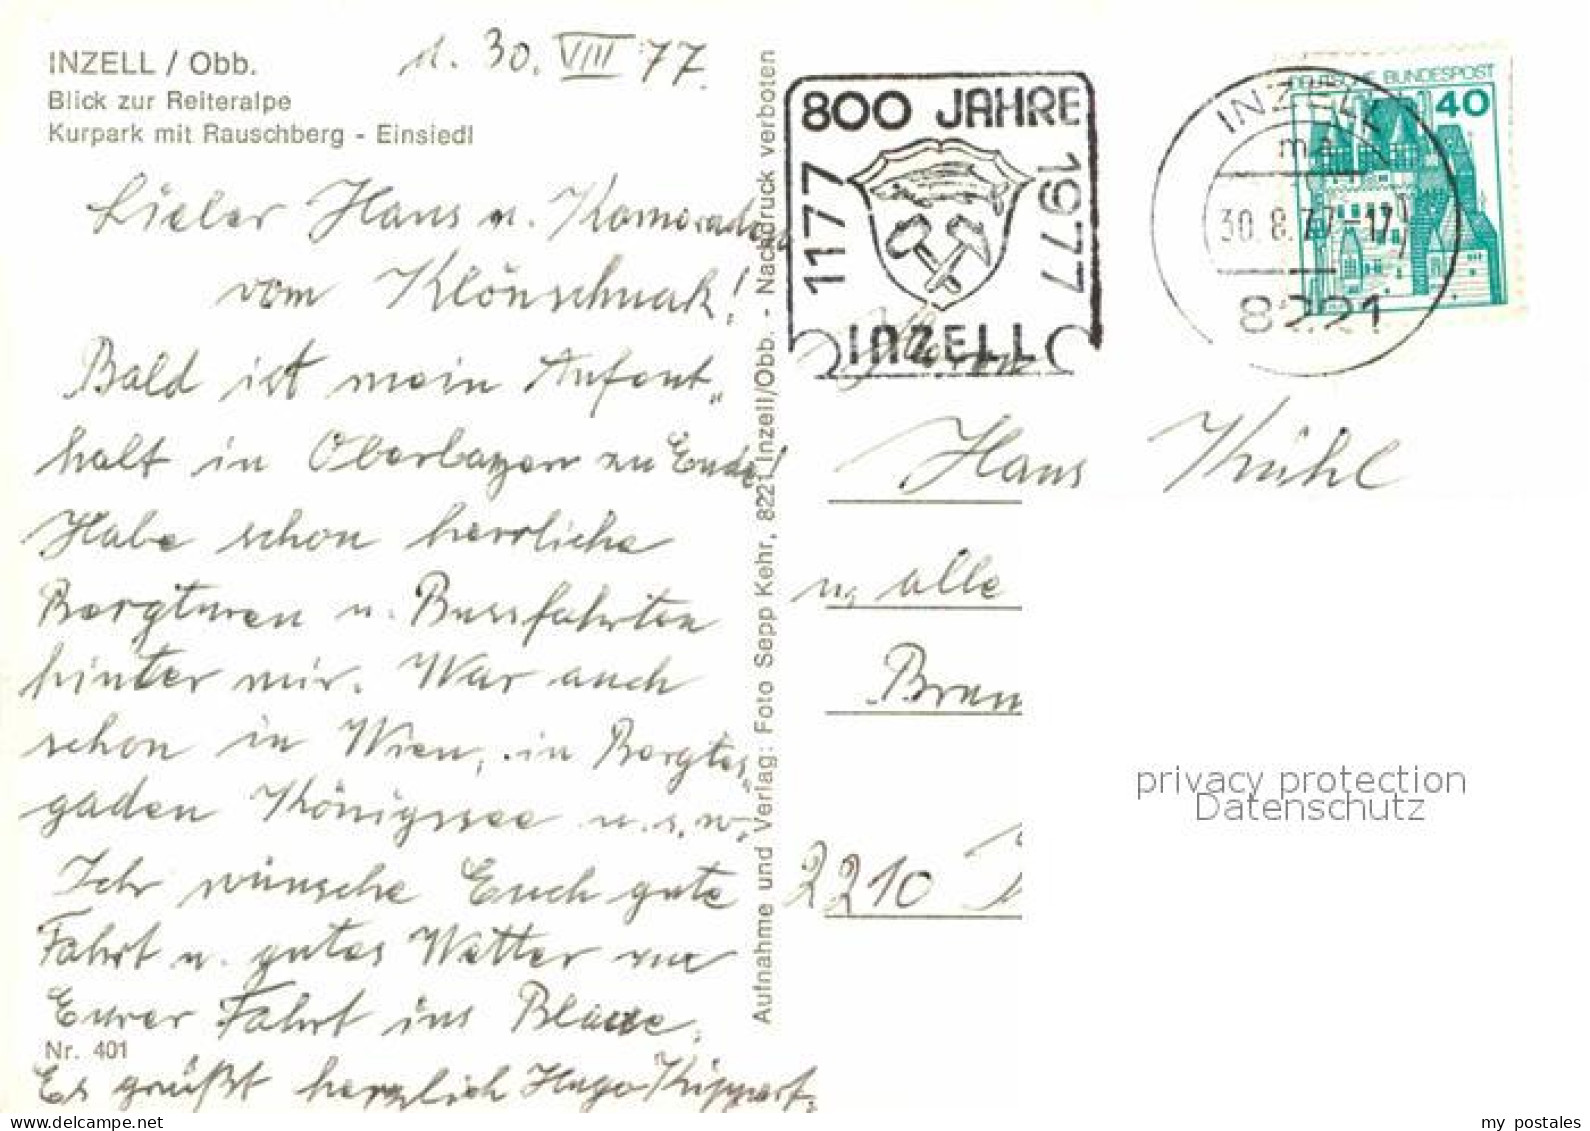 INZELL / Obb.
Blick zur Reiteralpe
Kurpark mit Rauschberg - Einsiedl
d. 30. VIII 77.
Lieber Hans u. Kameraden
vom Klönschnak!
Bald ist mein Aufent„
halt in Oberbayern zu Ende!
Habe schon herrliche
Bergturen u. Bussfahrten
hinter mir. War auch
schon in Wien, in Bergtes„
gaden Königssee u.s.w.
Ich wünsche Euch gute
Fahrt u. gutes Wetter zur
Eurer Fahrt ins Blaue.
Es grüßt herzlich Hugo Kippert.
Nr. 401
Aufnahme und Verlag: Foto Sepp Kehr, 8221 Inzell/Obb. - Nachdruck verboten
800 JAHRE
1177
1977
INZELL
DEUTSCHE BUNDESPOST
40
INZELL
ma
30.8.77-17
8221
Herrn
Hans Kühl
u, alle
2210
privacy protection
Datenschutz
my postales